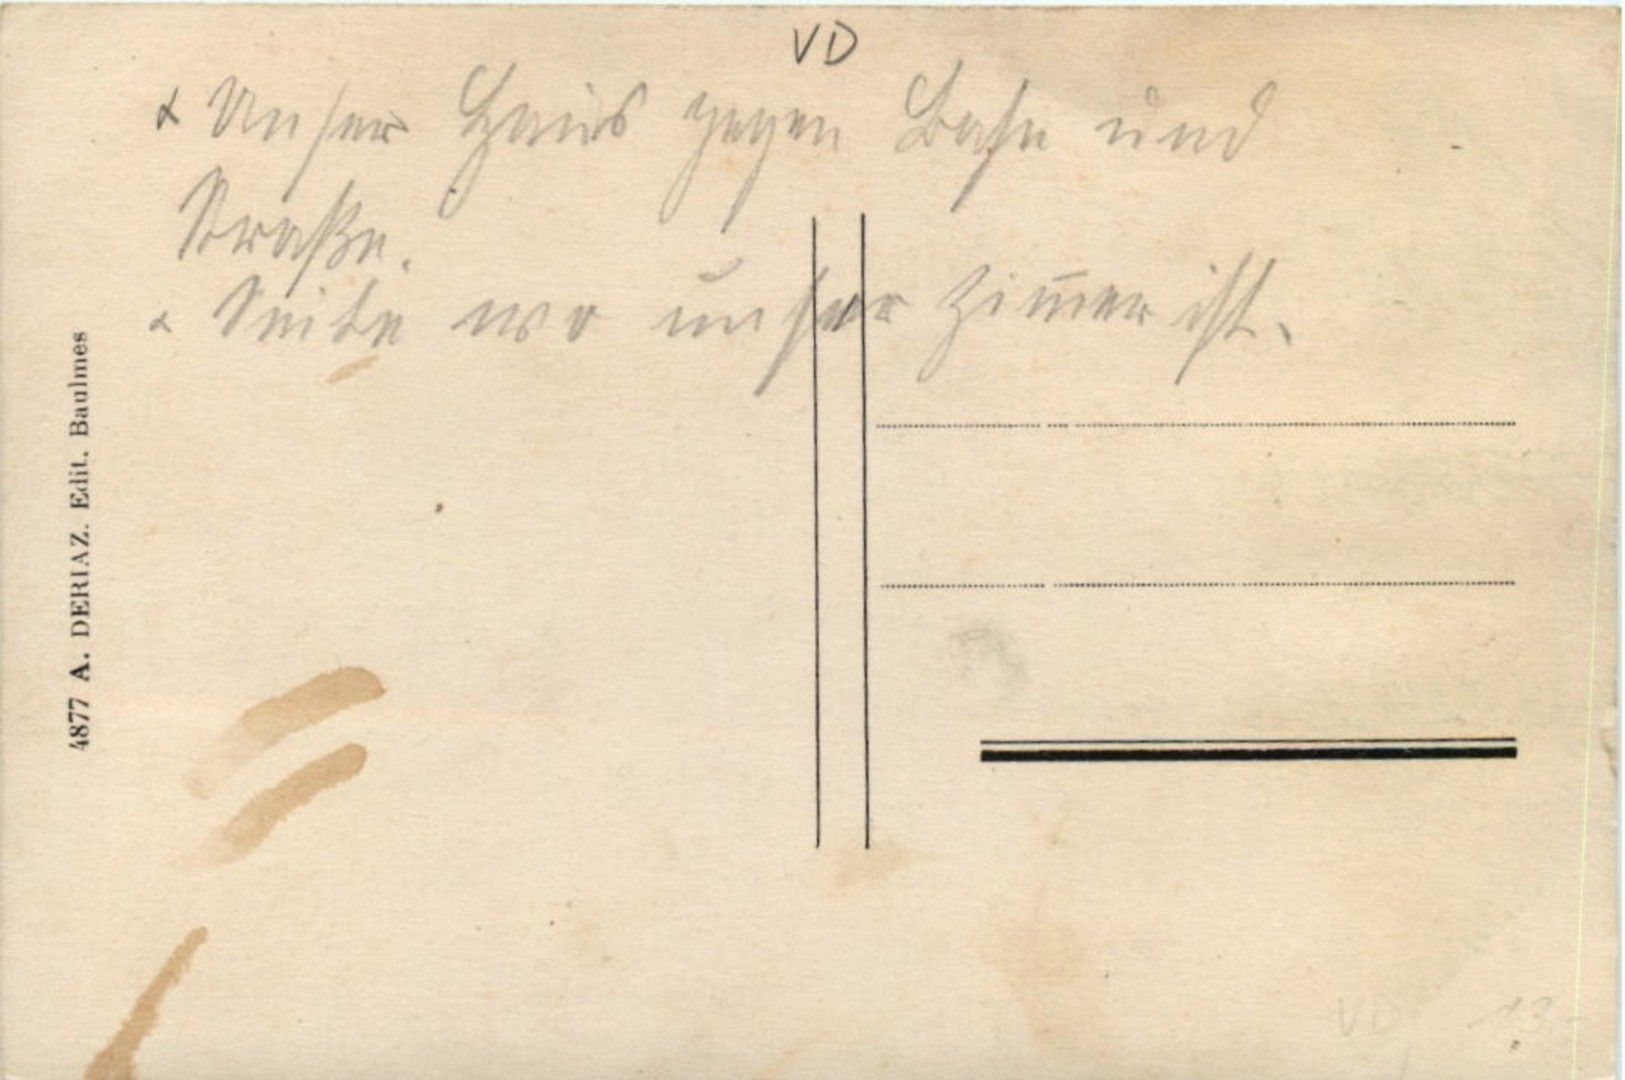 VD
x Unser Haus gegen Bahn und
Straße.
x Seite wo unser Zimmer ist.
4877 A. DERIAZ. Edit. Baulmes
VD 13.-